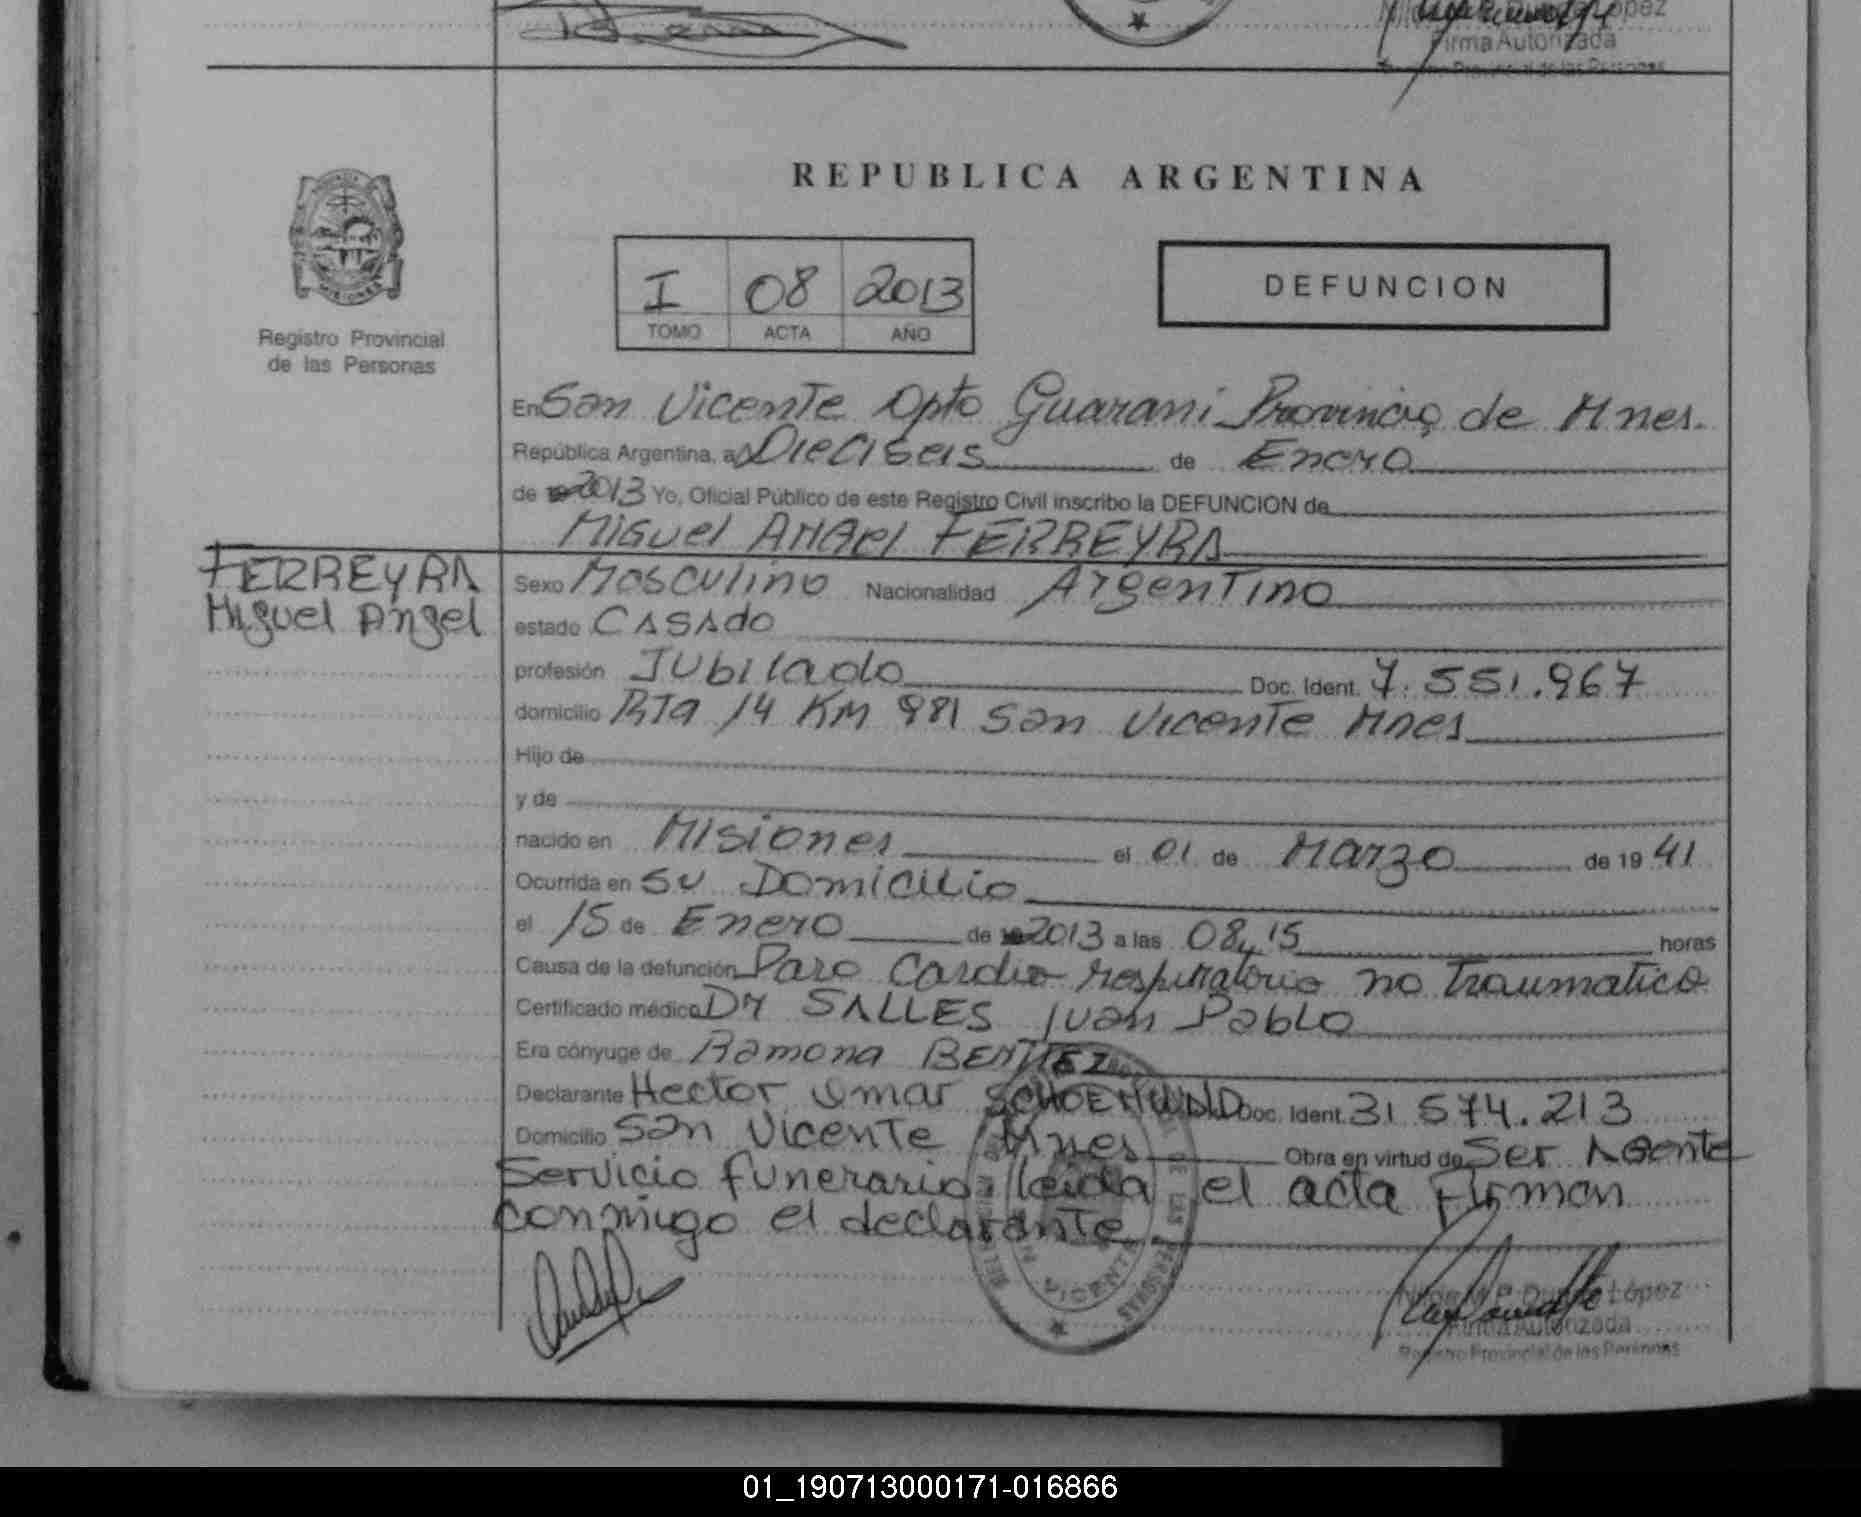 López
Firma Autorizada
Provincial de las Personas
REPUBLICA ARGENTINA
I 08 2013
TOMO ACTA AÑO
DEFUNCION
MISIONES
Registro Provincial
de las Personas
En San Vicente Dpto Guarani Provincia de Mnes.
República Argentina, a Dieciseis de Enero
de 2013 Yo, Oficial Público de este Registro Civil inscribo la DEFUNCION de
Miguel Angel FERREYRA
FERREYRA
Miguel Angel
Sexo Masculino Nacionalidad Argentino
estado CASAdo
profesión Jubilado Doc. Ident. 7.551.967
domicilio RTA 14 KM 981 San Vicente Mnes
Hijo de
y de
nacido en Misiones el 01 de Marzo de 19 41
Ocurrida en su Domicilio
el 15 de Enero de 2013 a las 08,15 horas
Causa de la defunción Paro Cardio respiratorio no Traumatico
Certificado médico Dr SALLES Juan Pablo
Era cónyuge de Ramona BENITEZ
Declarante Hector Omar Doc. Ident. 31 574.213
Domicilio San Vicente Mnes Obra en virtud de Ser Agente
Servicio funerario; leida el acta Firman
conmigo el declarante
VICENTE
DE LAS PERSONAS
López
Firma Autorizada
Registro Provincial de las Personas
01_190713000171-016866